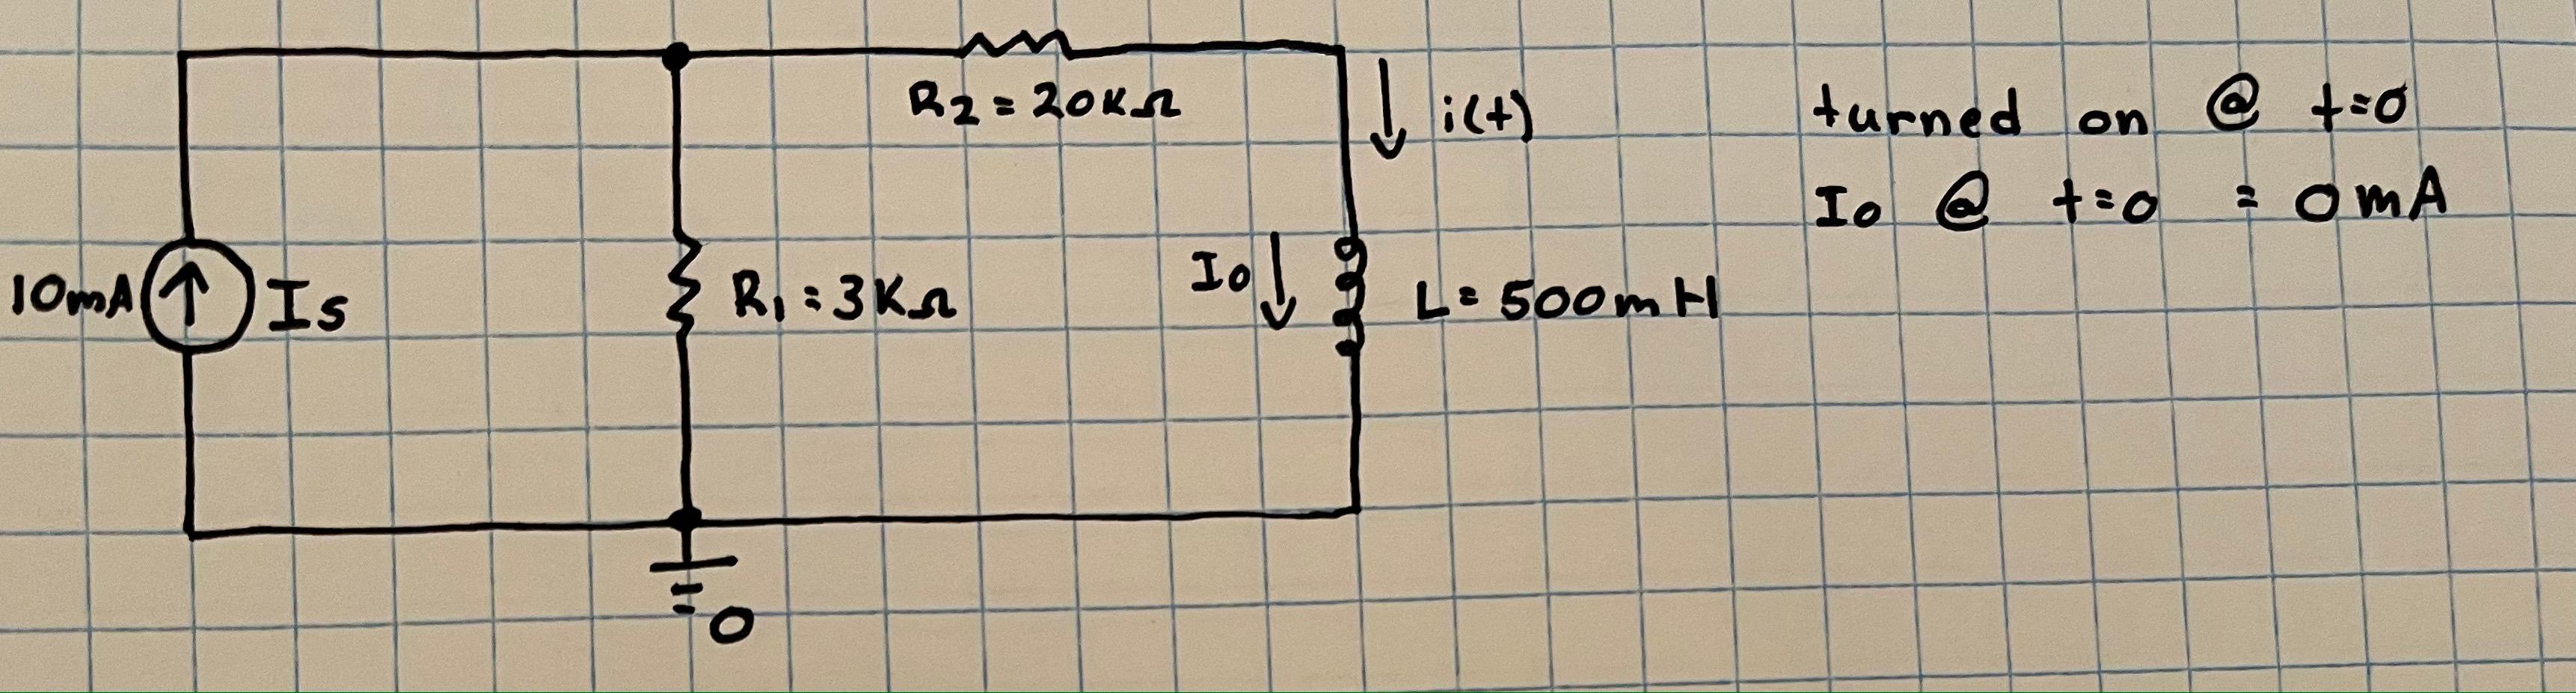 R2 = 20KΩ
i(t)
turned on @ t=0
Io @ t=0 = 0mA
10mA
Is
R1 = 3KΩ
Io
L= 500mH
0